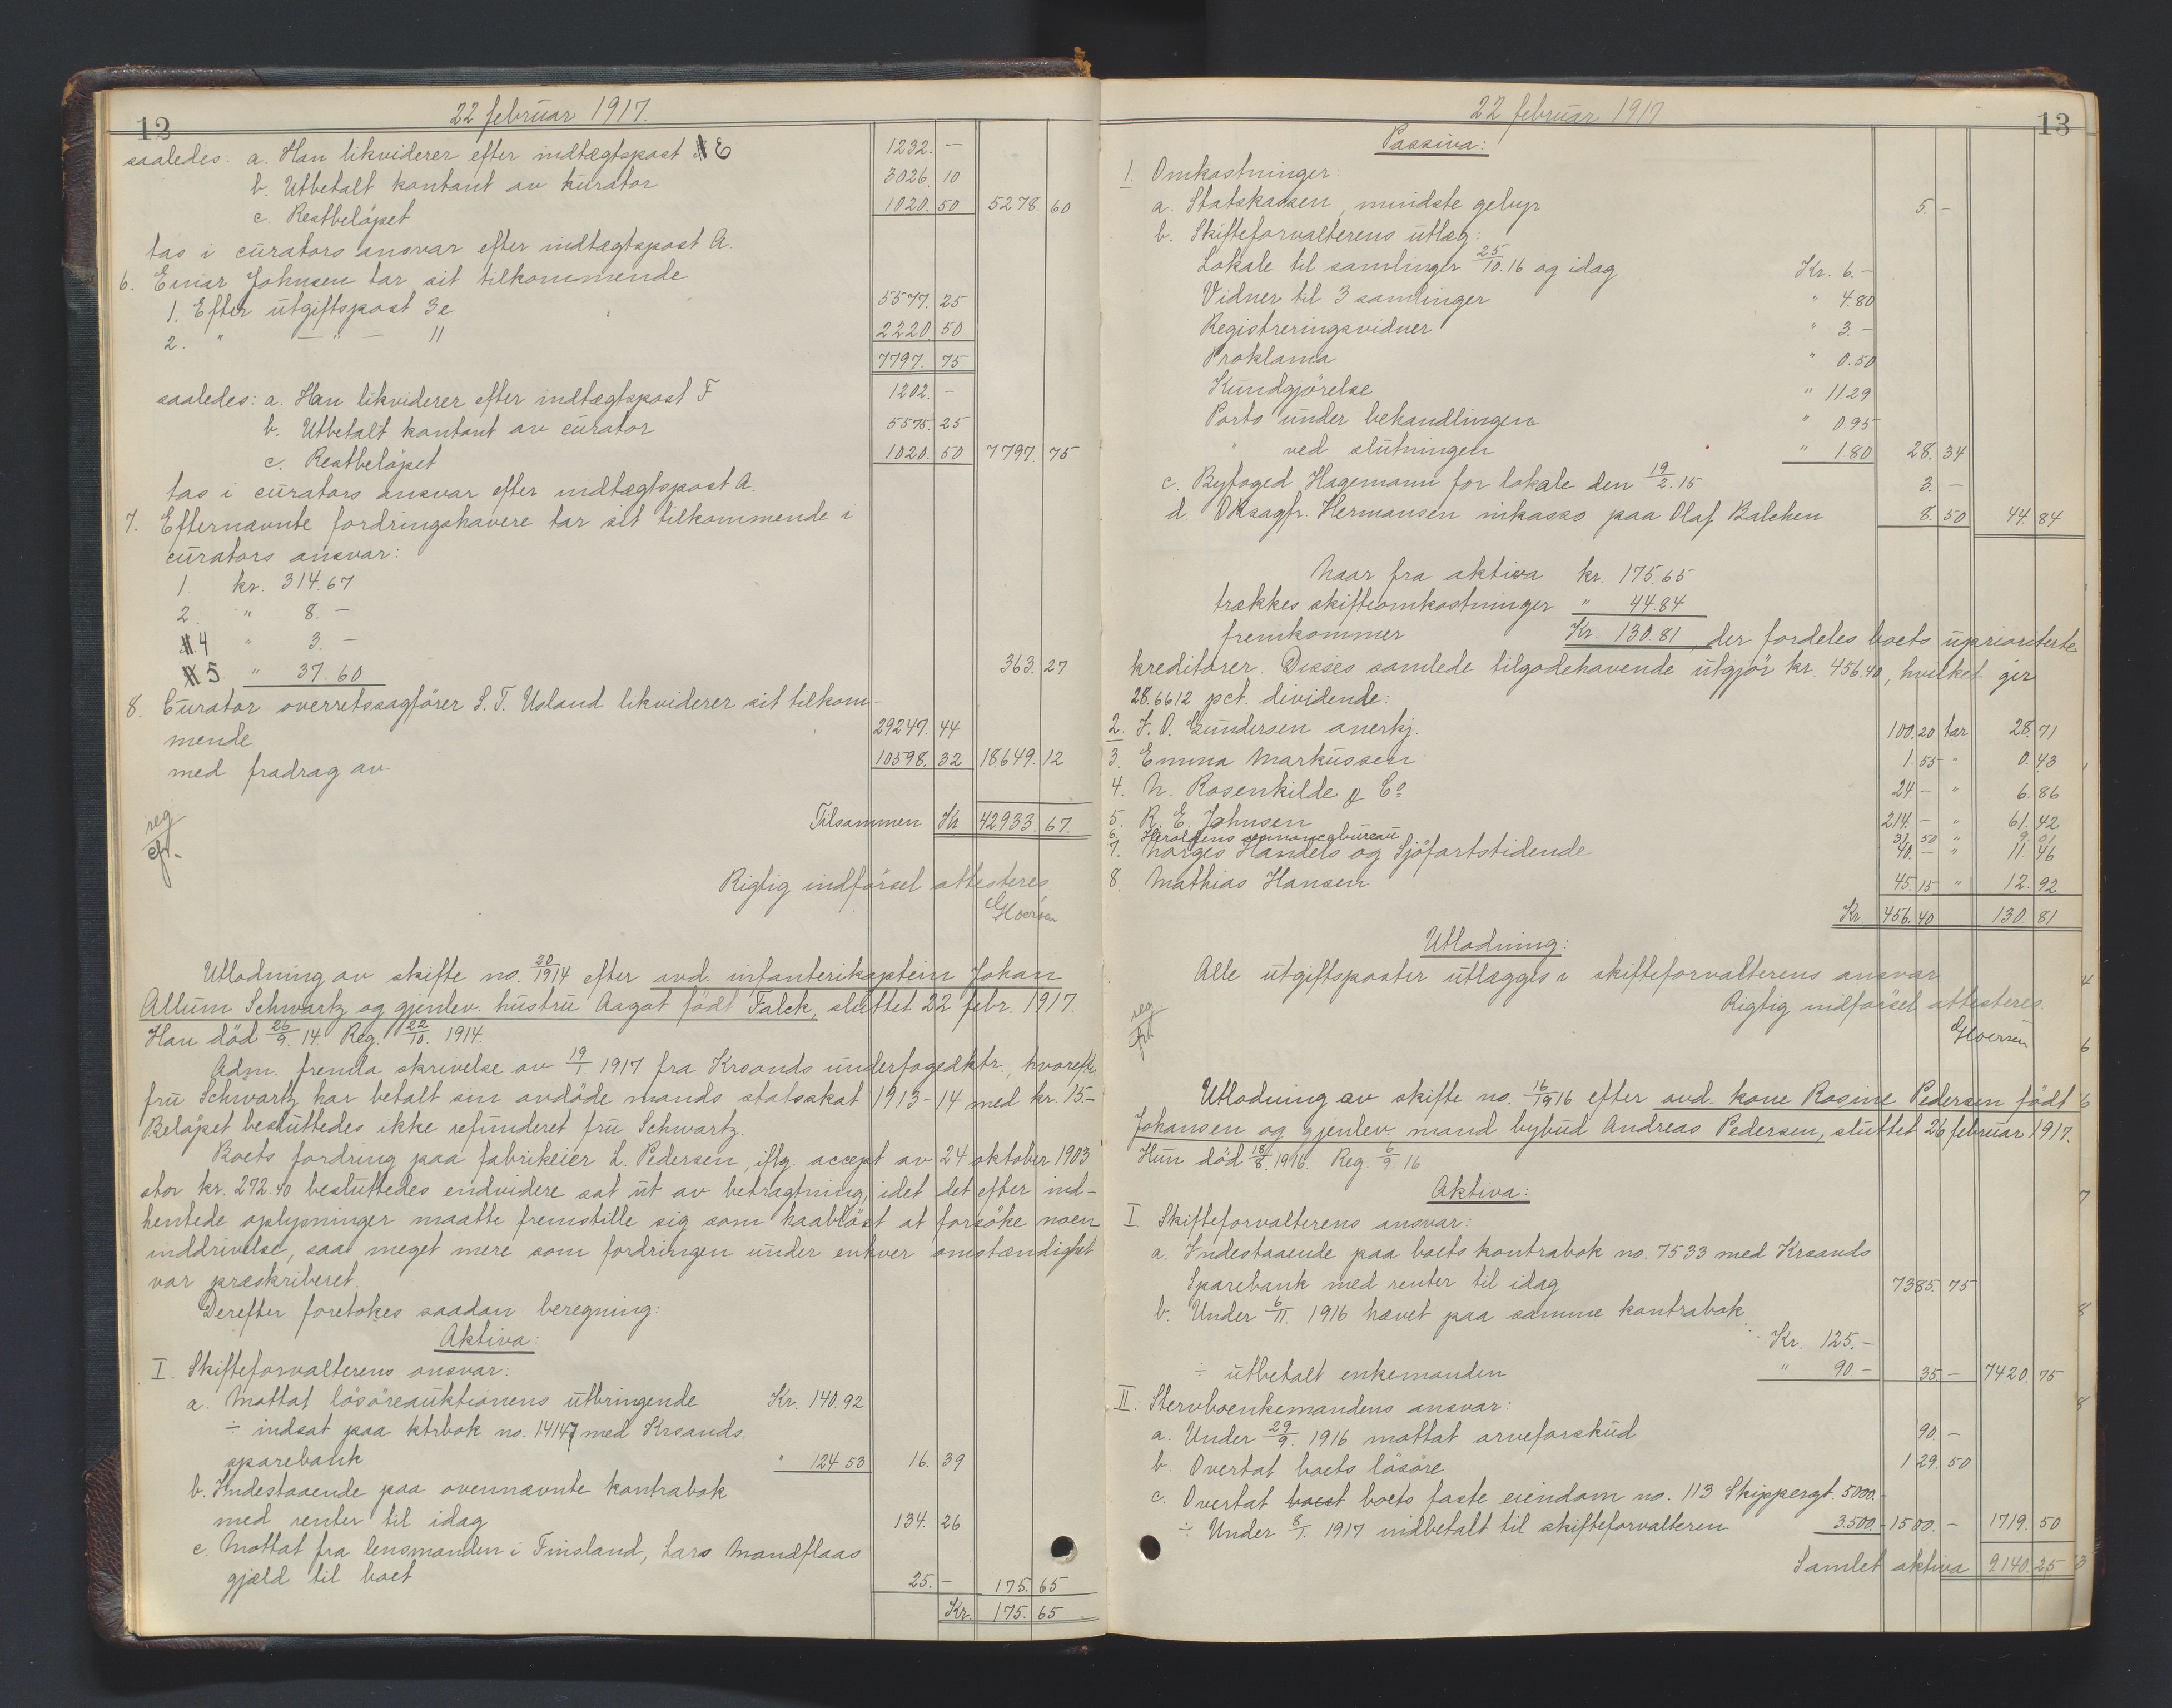 12
22 februar 1917.
saaledes: a. Han likviderer efter indtægtspost E 1232. –
b. Utbetalt kontant av kurator 3026. 10
c. Restbeløpet 1020. 50 5278. 60
tas i curators ansvar efter indtægtspost A.
6. Einar Johnsen tar sit tilkommende
1. Efter utgiftspost 3e 5577. 25
2. " — " — 11 2220. 50
7797. 75
saaledes: a. Han likviderer efter indtægtspost F 1202. –
b. Utbetalt kontant av curator 5575. 25
c. Restbeløpet 1020. 50 7797. 75
tas i curators ansvar efter indtægtspost A.
7. Efternævnte fordringshavere tar sit tilkommende i
curators ansvar:
1. kr. 314.67
2. " 8. –
4 " 3. –
5 " 37.60 363. 27
8. Curator overretssagfører S. T. Usland likviderer sit tilkom-
mende 29247. 44
med fradrag av 10598. 32 18649. 12
reg
Tilsammen Kr 42933. 67.
Rigtig indførsel attesteres.
Utlodning av skifte no. 20/1914 efter avd. infanterikaptein Johan
Allum Schwartz og gjenlev. hustru Aagot født Falck, sluttet 22 febr. 1917.
Han död 26/9. 14. Reg. 22/10. 1914.
Adm. fremla skrivelse av 19/1. 1917 fra Krsands underfogedktr., hvorefter
fru Schwartz har betalt sin avdöde mands statsskat 1913-14 med kr. 15.–
Beløpet besluttedes ikke refunderet fru Schwartz.
Boets fordring paa fabrikeier L. Pedersen, iflg. accept av 24 oktober 1903
stor kr. 272.40 besluttedes endvidere sat ut av betragtning, idet det efter ind-
hentede oplysninger maatte fremstille sig som haablöst at forsöke noen
inddrivelse, saa meget mere som fordringen under enhver omstændighet
var præskriberet.
Derefter foretokes saadan beregning:
Aktiva:
I. Skifteforvalterens ansvar:
a. Mottat lösöreauktionens utbringende Kr. 140.92
÷ indsat paa ktrbok no. 14147 med Krsands.
sparebank " 124.53 16. 39
b. Indestaaende paa ovennævnte kontrabok
med renter til idag 134. 26
c. Mottat fra lensmanden i Finsland, Lars Mandflaas
gjæld til boet 25. – 175. 65
Kr. 175. 65
22 februar 1917
13
Passiva:
1. Omkostninger:
a. Statskassen, mindste gebyr 5. –
b. Skifteforvalterens utlæg:
Lokale til samlinger 25/10.16 og idag Kr. 6. –
Vidner til 3 samlinger " 4.80
Registreringsvidner " 3. –
Proklama " 0.50
Kundgjörelse " 11.29
Porto under behandlingen " 0.95
" ved slutningen " 1.80 28. 34
c. Byfoged Hagemann for lokale den 19/2. 15 3. –
d. OKsagfr. Hermansen inkasso paa Olaf Balchen 8. 50 44. 84
Naar fra aktiva kr. 175.65
trækkes skifteomkostninger " 44.84
fremkommer Kr. 130.81 der fordeles boets uprioriterte
kreditorer. Disses samlede tilgodehavende utgjør kr. 456.40, hvilket gir
28.6612 pct. dividende:
2. J. O. Gundersen anerkj. 100. 20 tar 28. 71
3. Emma Markussen 1. 55 " 0. 43
4. N. Rosenkilde & Co 24. – " 6. 86
5. R. E. Johnsen 214. – " 61. 42
6. Heroldens annoncebureau 31. 50 " 9. 01
7. Norges Handels og Sjöfartstidende 40. – " 11. 46
8. Mathias Hansen 45. 15 " 12. 92
Kr. 456. 40 130. 81
Utlodning:
Alle utgiftsposter utlægges i skifteforvalterens ansvar
Rigtig indførsel attesteres.
reg
Utlodning av skifte no. 16/1916 efter avd. kone Rosine Pedersen født
Johansen og gjenlev. mand bybud Andreas Pedersen, sluttet 26 februar 1917.
Hun död 18/8. 1916. Reg. 6/9. 16.
Aktiva:
I. Skifteforvalterens ansvar:
a. Indestaaende paa boets kontrabok no. 7533 med Krsands
Sparebank med renter til idag 7385. 75
b. Under 6/11. 1916 hævet paa samme kontrabok
Kr. 125. –
÷ utbetalt enkemanden " 90. – 35 – 7420. 75
II. Stervboenkemandens ansvar:
a. Under 29/9. 1916 mottat arveforskud 90. –
b. Overtat boets lösöre 129. 50
c. Overtat boest boets faste eiendom no. 113 Skippergt. 5000.–
÷ Under 8/1. 1917 indbetalt til skifteforvalteren 3.500.– 1500. – 1719. 50
Samlet aktiva 9140. 25